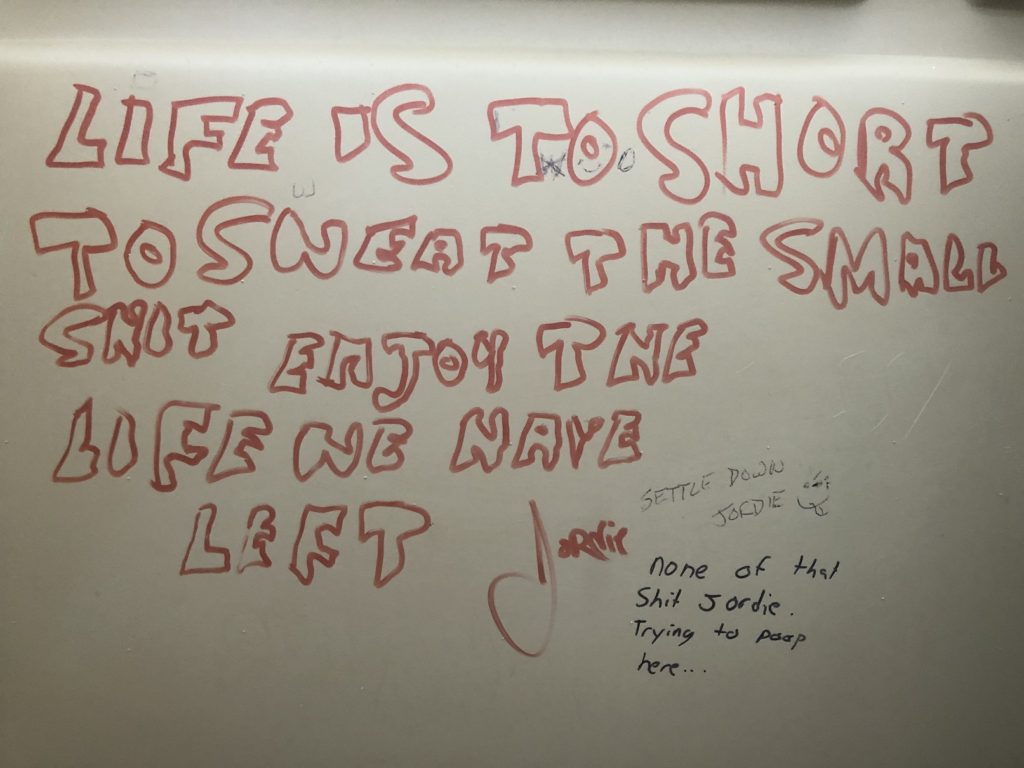 LIFE IS TO SHORT
TO SWEAT THE SMALL
SHIT ENJOY THE
LIFE WE HAVE
LEFT Jordie
SETTLE DOWN
JORDIE
None of that
Shit Jordie.
Trying to poop
here...